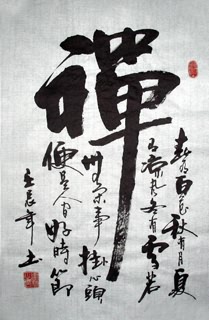 禪
春有百花秋有月夏
有凉风冬有雪若
无闲事掛心頭
便是人间好時節
壬辰年